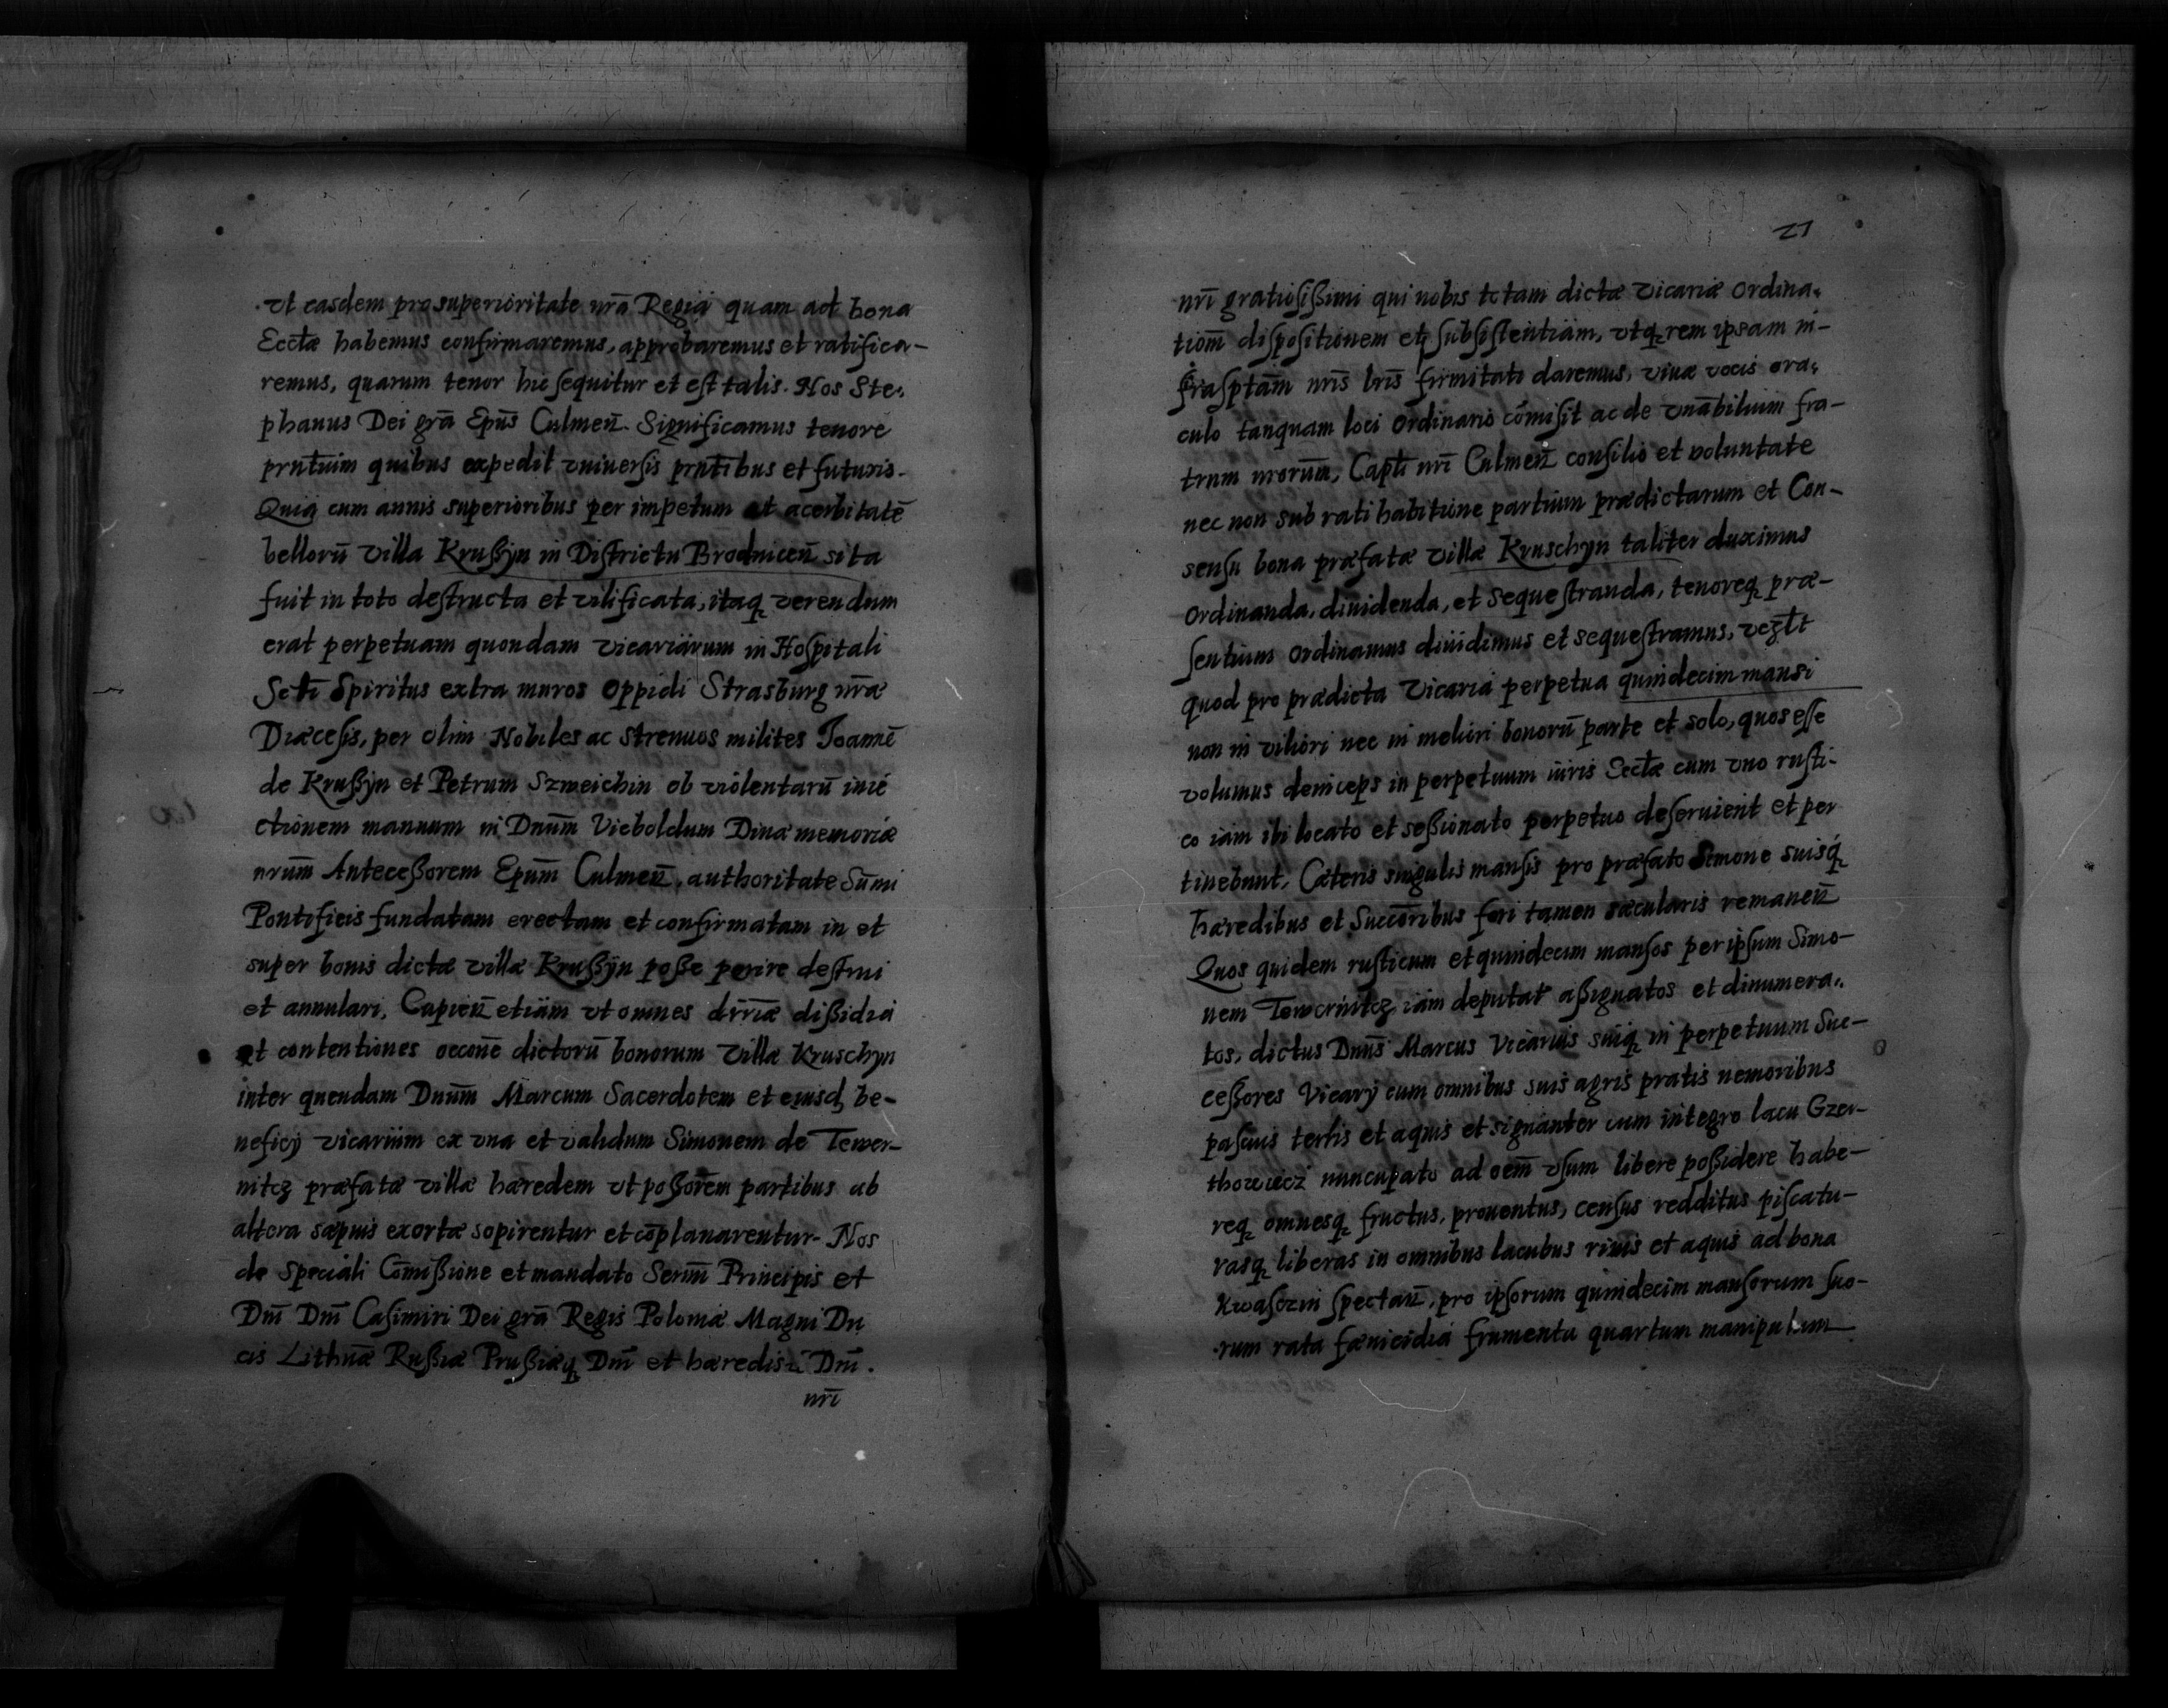 ut easdem pro superioritate nrā Regia quam ad bona
Ecctæ habemus confirmaremus, approbaremus et ratifica-
remus, quarum tenor hic sequitur et est talis. Nos Ste-
phanus Dei grā Epūs Culmeñ. Significamus tenore
prntium quibus expedit vniuersis prntibus et futuris.
Quia cum annis superioribus per impetum et acerbitatē
bellorū villa Krußyn in Districtu Brodniceñ sita
fuit in toto destructa et vilificata, itaq verendum
erat perpetuam quondam vicariarum in Hospitali
Scti Spiritus extra muros oppidi Strasburg nræ
Diæcesis, per olim Nobiles ac strenuos milites Joannē
de Krußyn et Petrum Szweichin ob violentarū inie
ctionem manuum in Dnūm Vieboldum Diuæ memoriæ
nrūm Antecessorem Epūm Culmeñ, authoritate Sūmi
Pontificis fundatam erectam et confirmatam in et
super bonis dictæ villæ Krußyn poße perire destrui
et annulari. Capieñ etiam vt omnes drriæ dißidia
et contentiones occōne dictorū bonorum Villæ Kruschyn
inter quendam Dnūm Marcum Sacerdotem et eiusd be-
neficij vicarium ex vna et validum Simonem de Tewer-
nitcz præfatæ villæ hæredem vt poßorēm partibus ab
altera sæpius exortæ sopirentur et cōplanarentur. Nos
de speciali Cōmißione et mandato Sermī Principis et
Dnī Dnī Casimiri Dei grā Regis Poloniæ Magni Du
cis Lithuæ Rußiæ Prußiæq Dnī et hæredis Dnī.
nrī
21
nrī gratiosißimi qui nobis totam dictæ vicariæ ordina-
tiōm dispositionem et subsistentiam, vtq rem ipsam in-
fraſptām nrīs lrīs firmitate daremus, viuæ vocis ora-
culo tanquam loci ordinario cōmisit ac de vnābilium fra-
trum nrorūm, Captī nrī Culmeñ consilio et voluntate
nec non sub rati habitione partium prædictarum et Con-
sensu bona præfatæ villæ Kruschyn taliter duximus
ordinanda, diuidenda, et sequestranda, tenoreq præ-
sentium ordinamus diuidimus et sequestramus, vezlt
quod pro prædicta Vicaria perpetua quindecim mansi
non in viliori nec in meliori bonorū parte et solo, quos esse
volumus deinceps in perpetuum iuris Ecctæ cum vno rusti-
co iam ibi locato et seßionato perpetuo deseruient et per
tinebunt, Cæteris singulis mansis pro præfato Simone suisq
hæredibus et Succōribus fori tamen sæcularis remaneñ
Quos quidem rusticum et quindecim mansos per ipsum Simo-
nem Tewernitcz iam deputat aßignatos et dinumera-
tos, dictus Dnūs Marcus Vicarius suiq in perpetuum Suc-
ceßores Vicarij cum omnibus suis agris pratis nemoribus
pascuis terris et aquis et signanter cum integro lacu Gzer-
thowiecz nuncupato ad oēm vsum libere poßidere habe-
req omnesq fructus, prouentus, census redditus piscatu-
rasq liberas in omnibus lacubus riuis et aquis ad bona
Kwasczin spectañ, pro ipsorum quindecim mansorum suo-
rum rata fænicidia frumenta quartum manipulum